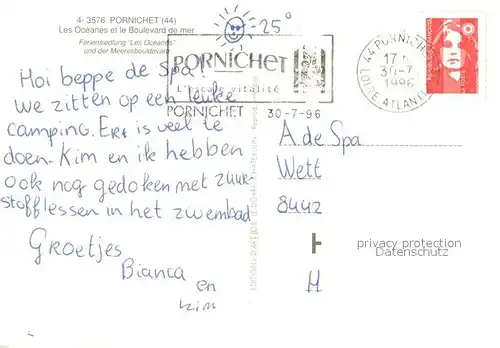 4- 3576 PORNICHET (44)
Les Océanes et le Boulevard de mer
Feriensiedlung "Les Océanes"
und der Meeresboulevard
25°
PORNICHET
L'escale vitalité
PORNICHET 30-7-96
44 PORNICHET
17 H
30-7
1996
LOIRE ATLANTIQUE
Hoi beppe de Spa!
We zitten op een leuke
camping. Er is veel te
doen. Kim en ik hebben
ook nog gedoken met zuur-
stofflessen in het zwembad
Groetjes
Bianca
en
Kim
A de Spa
Wett
8442
H
privacy protection
Datenschutz